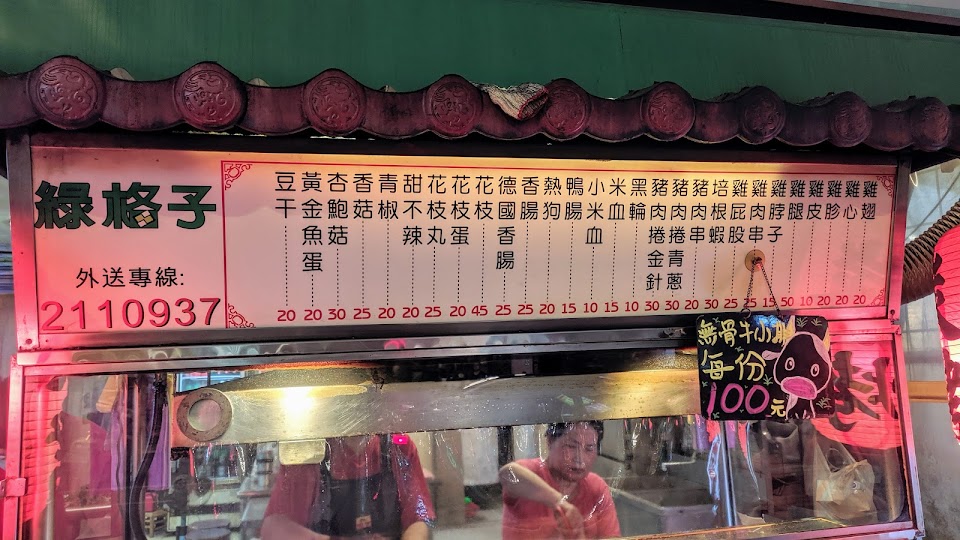 綠格子
外送專線:
2110937
豆干 20
黃金魚蛋 20
杏鮑菇 30
香菇 25
青椒 20
甜不辣 20
花枝丸 25
花枝蛋 20
花枝 45
德國香腸 25
香腸 25
熱狗 20
鴨腸 15
小米血 10
米血 15
黑輪 10
豬肉捲金針 30
豬肉捲青蔥 30
豬肉串 20
培根蝦 30
雞屁股 25
雞肉串 25
雞脖子 15
雞腿 50
雞皮 10
雞胗 20
雞心 20
雞翅 20
無骨牛小排
每份
100元